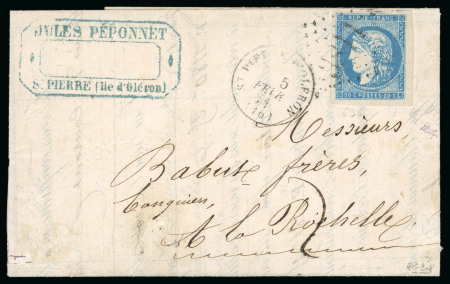 JULES PÉPONNET
St PIERRE (Ile d'Oléron)
ST PIERRE D'OLERON
5
FEVR
71
(16)
REPUB. FRANC.
20 C. POSTES 20 C.
Messieurs,
Babut frères,
banquiers,
A la Rochelle
2